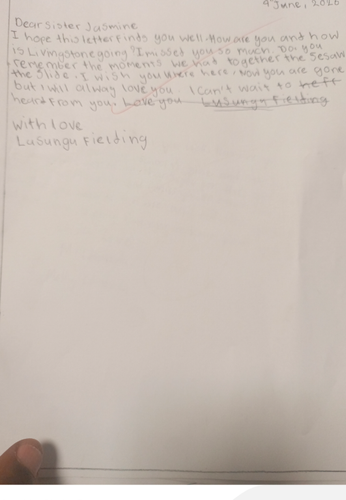 4 June, 2026
Dear Sister Jasmine
I hope this letter finds you well. How are you and how
is Livingstone going? I misset you so much. Do you
remember the moments we had together the
the Slide. I wish you where here, Now you are gone
but I will alway love you. I can't wait to heft
heard from you. Love you Lusungu Fielding
with love
Lusungu Fielding